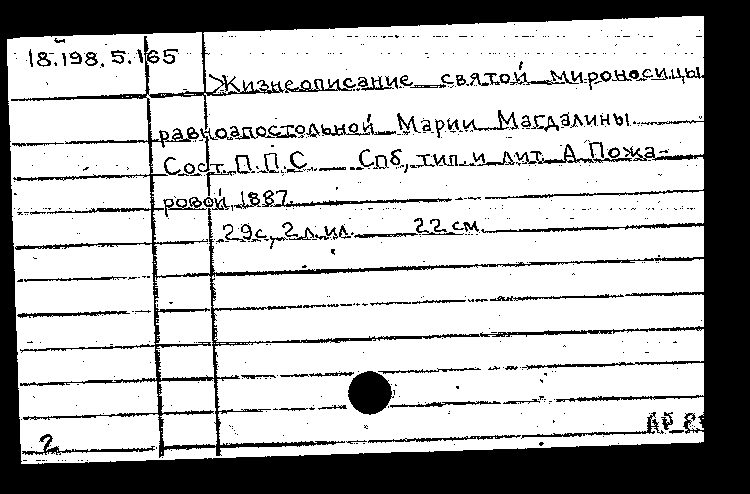 18.198.5.165
Жизнеописание святой мироносицы
равноапостольной Марии Магдалины.
Сост. П.П.С Спб, тип. и лит. А Пожа-
ровой, 1887.
29с, 2 л. ил. 22 см.
2